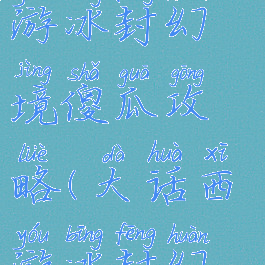 游冰封幻
jìng shǎ guā gōng
境傻瓜攻
lüè dà huà xī
略(大话西
yóu bīng fēng huàn
游冰封幻